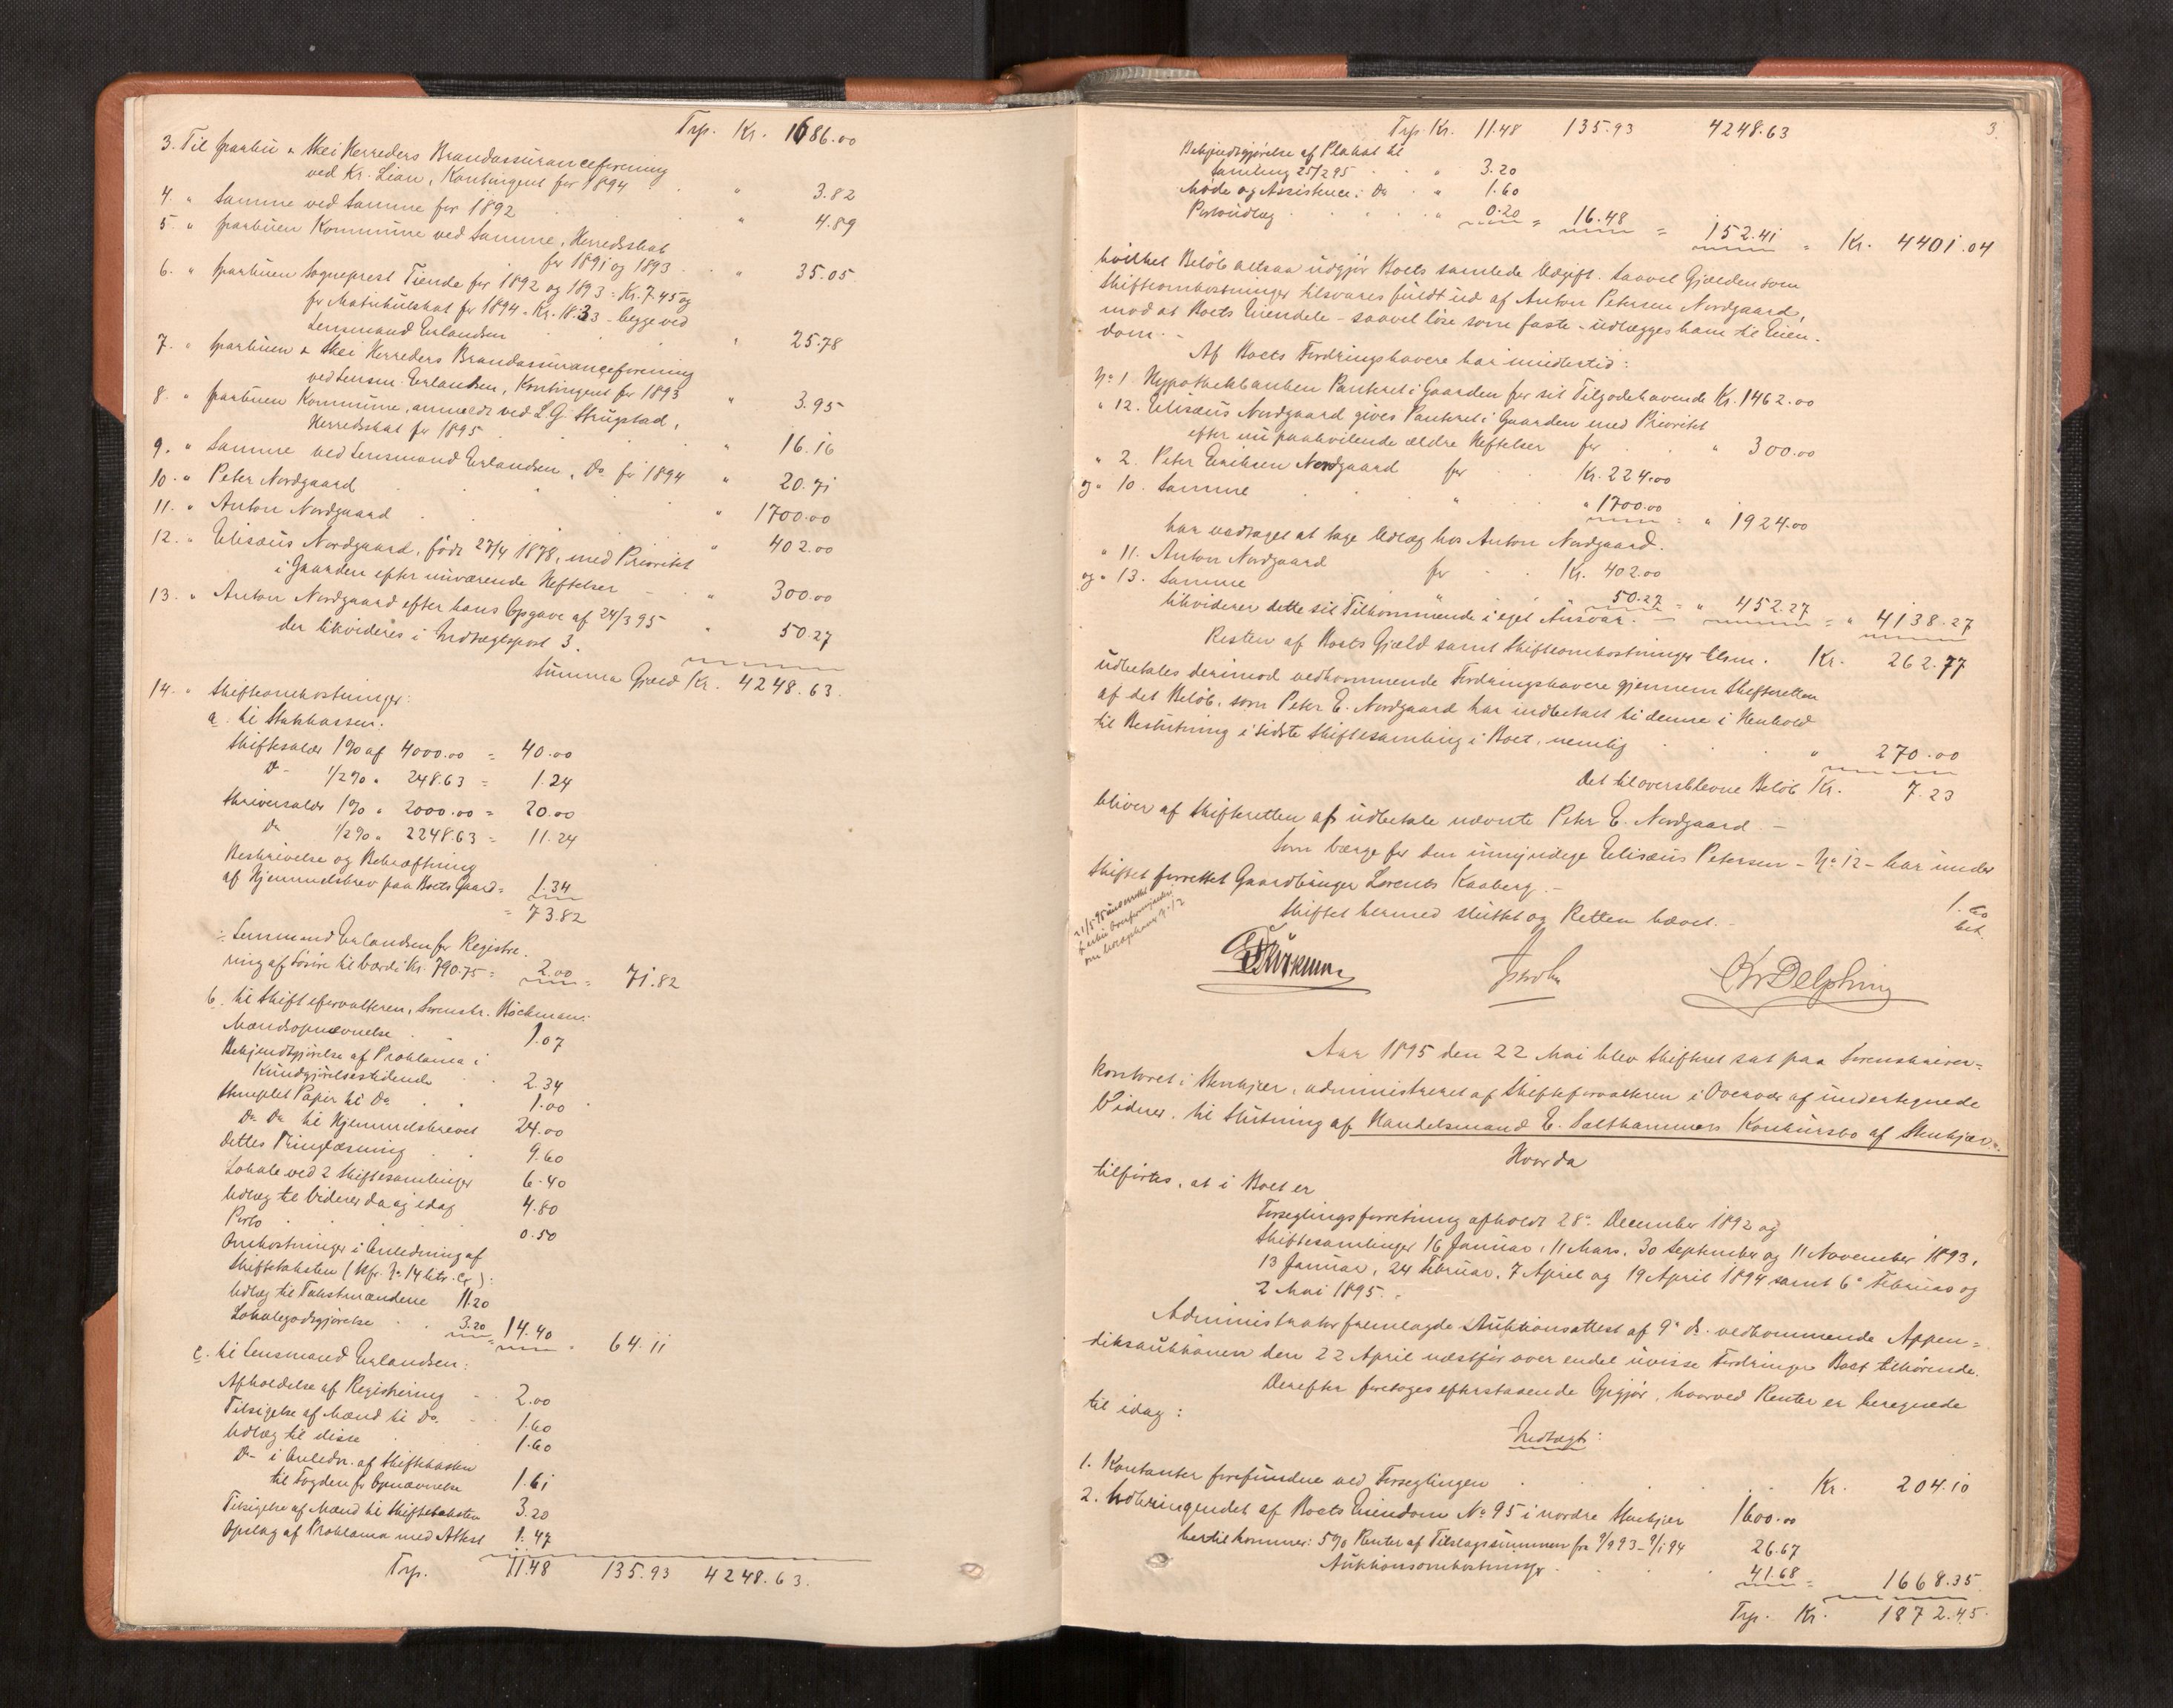 Trp. Kr. 1686.00
3. Til Sparbu & Skei Herreders Brandassuranceforening
ved Kr. Lian, Kontingent for 1894 . . " 3.82
4. " Samme ved Samme for 1892 . " 4.89
5. " Sparbuen Kommune ved Samme, Herredsskat
for 1891 og 1893 . . " 35.05
6. " Sparbuen Sogneprest Tiende for 1892 og 1893 = Kr. 7.45 og
for Matrikulskat for 1894 - Kr. 18.33 - begge ved
Lensmand Erlandsen . " 25.78
7. " Sparbuen & Skei Herreders Brandassuranceforening
ved Lensm. Erlandsen, Kontingent for 1893 " 3.95
8. " Sparbuen Kommune, anmeldt ved L. G. Strugstad,
Herredsskat for 1895 . " 16.16
9. " Samme ved Lensmand Erlandsen, Do for 1894 " 20.71
10. " Peter Nordgaard . . " 1700.00
11. " Anton Nordgaard . . " 402.00
12. " Elisæus Nordgaard, født 27/4 1878, med Prioritet
i Gaarden efter nuværende Heftelser - " 300.00
13. " Anton Nordgaard efter hans Opgave af 24/3 95
der likvideres i Indtægtspost 3. " 50.27
Summa Gjæld Kr. 4248.63.
14. " Skifteomkostninger:
a. til Statskassen:
Skiftesalær 1% af 4000.00 = 40.00
Do - 1/2% " 248.63 = 1.24
Skriversalær 1% " 2000.00 = 20.00
Do 1/2% " 2248.63 = 11.24
Beskrivelse og Bekræftning
af Hjemmelsbrev paa Boets Gaard = 1.34
= 73.82
÷ Lensmand Erlandsen for Registre-
ring af Løsøre til værdi Kr. 790.75 = 2.00 = 71.82
b. til Skifteforvalteren, Sorenskr. Böckman:
Mændsopnævnelse . 1.07
Bekjendtgjørelse af Proklama i
Kundgjørelsestidende . . 2.34
Stemplet Papir til Do . . 1.00
Do Do til Hjemmelsbrevet 24.00
Dettes Thinglæsning . . 9.60
Lokale ved 2 Skiftesamlinger 6.40
Udlæg til Vidner da og idag 4.80
Porto . . . . 0.50
Omkostninger i Anledning af
Skiftetaksten (Kfr. No 14 litr. c):
Udlæg til Takstmændene 11.20
Lokalegodtgjørelse . . 3.20 = 14.40 = 64.11
c. til Lensmand Erlandsen:
Afholdelse af Registrering - - 2.00
Tilsigelse af Mænd til Do. - 1.60
Udlæg til disse . . 1.60
Do - i Anledn. af Skiftetaksten
til Fogden for Opnævnelse 1.61
Tilsigelse af Mænd til Skiftetaksten 3.20
Opslag af Proklama med Attest 1.47
Trp. 11.48 135.93 4248.63.
3.
Trp. Kr. 11.48 135.93 4248.63
Bekjendtgjørelse af Plakat til
Samling 25/2 95 . . " 3.20
Møde og Assistence: Do . " 1.60
Portoudlæg . . . . " 0.20 = 16.48 = 152.41 = Kr. 4401.04
hvilket Beløb altsaa udgjør Boets samlede Udgift. Saavel Gjælden som
Skifteomkostninger tilsvares fuldt ud af Anton Petersen Nordgaard,
mod at Boets Eiendele - saavel løse som faste - udlægges ham til Eien-
dom. -
Af Boets Fordringshavere har imidlertid:
No 1 Hypothekbanken Panteret i Gaarden for sit Tilgodehavende Kr. 1462.00
" 12. Elisæus Nordgaard gives Panteret i Gaarden med Prioritet
efter nu paahvilende ældre Heftelser for . . " 300.00
" 2. Peter Eriksen Nordgaard for Kr. 224.00
og " 10. Samme . " " 1700.00 = " 1924.00
har vedtaget at tage Udlæg hos Anton Nordgaard.
" 11. Anton Nordgaard for . . Kr. 402.00
og " 13. Samme " . 50.27 = " 452.27
likviderer dette sit Tilkommende i eget Ansvar. - = " 4138.27
Resten af Boets Gjæld samt Skifteomkostninger tilsm. Kr. 262.77
udbetales derimod vedkommende Fordringshavere gjennem Skifteretten
af det Beløb, som Peter E. Nordgaard har indbetalt til denne i Henhold
til Beslutning i sidste Skiftesamling i Boet, nemlig . . " 270.00
Det tiloversblevne Beløb Kr. 7.23
bliver af Skifteretten at udbetale nævnte Peter E. Nordgaard -
Som værge for den umyndige Elisæus Petersen - No 12 - har under
Skiftet forrettet Gaardbruger Lorents Kaaberg. -
Skiftet hermed sluttet og Retten hævet. -
1.60
bet.
21/5 95 underrettet
om Udlæghaver No 12
Kr Delphin
Aar 1895 den 22 Mai blev Skifteret sat paa Sorenskriver-
kontoret i Stenkjær, administreret af Skifteforvalteren i Overvær af undertegnede
Vidner, til Slutning af Handelsmand E. Salthammers Konkursbo af Stenkjær.
Hvorda
tilførtes, at i Boet er
Forseglingsforretning afholdt 28de December 1892 og
Skiftesamlinger 16 Januar, 11 Mars, 30 September og 11 November 1893,
13 Januar, 24 Februar, 7 April og 19 April 1894 samt 6te Februar og
2 Mai 1895. -
Administrator fremlagde Auktionsattest af 9de ds. vedkommende Appen-
diksauktionen den 22 April næstfør over endel uvisse Fordringer Boet tilhørende.
Derefter foretoges efterstaaende Opgjør, hvorved Renter er beregnede
til idag:
Indtægt:
1. Kontanter forefundne ved Forseglingen . . . . Kr. 204.10
2. Indbringendet af Boets Eiendom No 95 i nordre Stenkjær 1600.00
hertil kommer: 5% Renter af Tilslagssummen fra 9/9 93 - 9/1 94 26.67
Auktionsomkostninger . . . 41.68 = 1668.35
Trp. Kr. 1872.45.